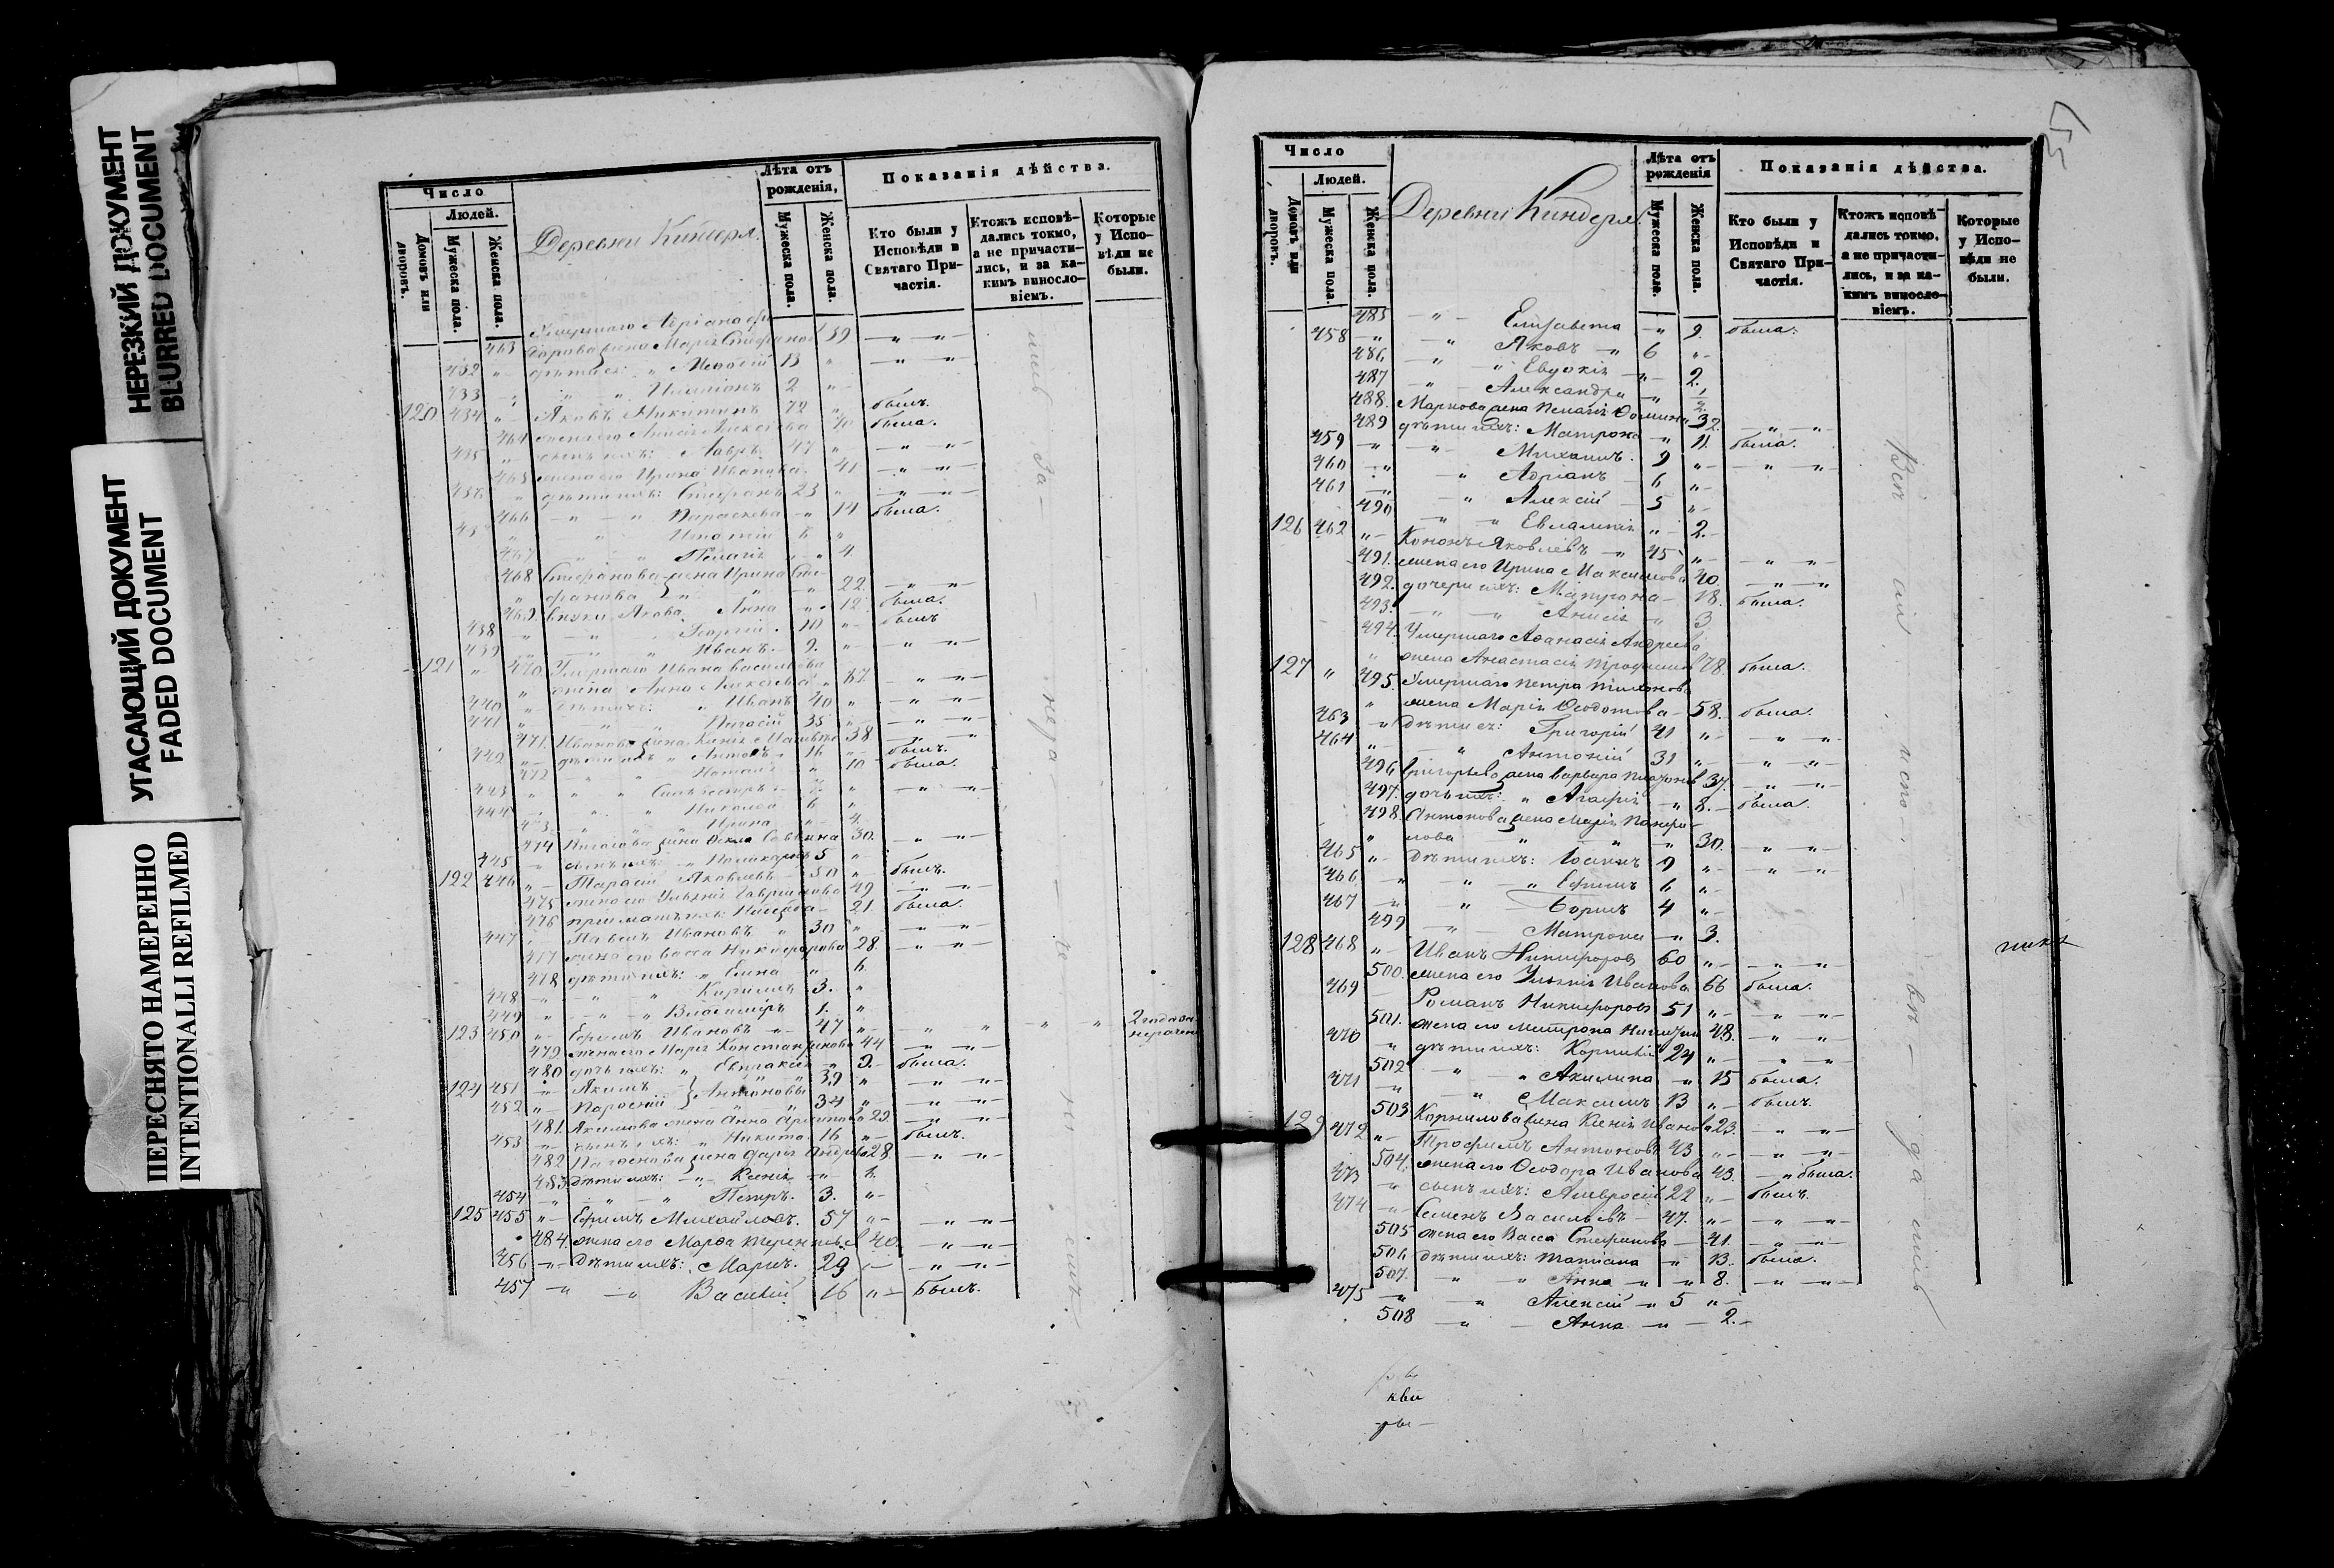 НЕРЕЗКИЙ ДОКУМЕНТ
BLURRED DOCUMENT
УГАСАЮЩИЙ ДОКУМЕНТ
FADED DOCUMENT
ПЕРЕСНЯТО НАМЕРЕННО
INTENTIONALLI REFILMED
Число
Людей.
Домовъ или дворовъ.
Мужеска пола.
Женска пола.
Деревни Киндерл.
Лѣта отъ рожденія,
Мужеска пола.
Женска пола.
Показанія дѣйства.
Кто были у Исповѣди и Святаго Причастія.
Ктожъ исповѣдались токмо, а не причастились, и за какимъ винословіемъ.
Которые у Исповѣди не были.
Умершаго Адріана
463 жена Марія Стефанов 59
432 дѣти ея: Меѳодій 13
433 2
120 434 Яковъ Никитинъ 72 былъ.
464 жена его была.
435 сынъ ихъ: Лавръ 47
465 жена его Ирина Иванова 41
436 дѣти ихъ: Стефанъ 23
466 Параскева 14 была.
437 Игнатій 6
467 Пелагія 4
468 Стефанова жена Ирина Сте-
фанова 22
469 внуки Якова Анна 12 была.
438 Георгій 10 былъ
439 Иванъ 9.
121 470 Умершаго Ивана Васильева
жена Анна Алексѣева 67
440 дѣти ихъ: Иванъ 40
441 Пигасій 35
471. Иванова жена Ксенія Матвѣева 38
442 дѣти ихъ Антонъ 16 былъ.
472 Наталія 10 была.
443 Сильвестръ 7.
444 Николай 6
473 Ирина 4.
474 Пигасова жена Ѳекла Саввина 30.
445 сынъ ихъ: Поликарпъ 5
122 446 Тарасій Яковлевъ 50 былъ.
475 жена его Ульянія Гаврилова 49
476 21 была.
447 Павелъ Ивановъ 30
477 жена его Васса Никифорова 28.
478 дѣти ихъ: Елена 6
448 Кириллъ 3.
449 Владиміръ 1.
123 450 Ефимъ Ивановъ 47 2 года за нераченіемъ
479 жена его Марія Константинова 44
480 дочь ихъ: Евпраксія 9. была.
124 451 Акимъ } Антоновы 39
452 34
481. Акимова жена Анна Архипова 39
453 сынъ ихъ: Никита 16 былъ.
482 жена Дарія Андреева 28
483 дѣти ихъ: Ксенія 6.
454 Петръ. 3.
125 455 Ефимъ Михайловъ. 57
484 жена его Марѳа Терентьев 40
456 дѣти ихъ: Маркъ. 29
457 Василій 16 былъ.
Число
Людей.
Домовъ или дворовъ.
Мужеска пола.
Женска пола.
Деревни Киндерл.
Лѣта отъ рожденія
Мужеска пола.
Женска пола.
Показанія дѣйства.
Кто были у Исповѣди и Святаго Причастія.
Ктожъ исповѣдались токмо, а не причастились, и за какимъ винословіемъ.
Которые у Исповѣди не были.
485 Елисавета 9. была.
458 Яковъ 6
486 Евдокія 2.
487 Александра 1/2
488. Маркова жена Пелагія Ѳомина 32.
489 дѣти ихъ: Матрона 11. была.
459 Михаилъ. 9
460 Адріанъ 6
461 Алексій 5
490 Евлампія 2.
126 462 Кононъ Яковлевъ 45
491. жена его Ирина Максимова 40.
492. дочери ихъ: Матрона 18. была.
493. Анисія 3
494. Умершаго Аѳанасія Андреева
жена Анастасія Трофимова 78. была.
127 495. Умершаго Петра Тихонова
жена Марія Ѳеодотова 58. была.
463 Дѣти ея: Григорій 41
464 Антоній 31
496 Григорьева жена Варвара Платонов 37.
497. дочь ихъ: Агафія 8. была.
498. Антонова жена Марія Памфи-
лова 30.
465 дѣти ихъ: Іоаннъ 9
466 Ефимъ 6
467 Борисъ 4
499 Матрона 3.
128 468 Иванъ Никифоровъ 60
500. жена его Ульянія Иванова 66 была.
469 Романъ Никифоровъ 51
501. жена его Митрона 48.
470 дѣти ихъ: Корнилій 24
502 Акилина 15 была.
471 Максимъ 13 былъ.
503 Корнилова жена Ксенія Иванова 23.
129 472 Трофимъ Антоновъ 43
504. жена его Ѳеодора Иванова 43. была.
473 сынъ ихъ: Амвросій 22 былъ.
474 Семенъ Васильевъ 47.
505 жена его Васса Стефанова 41.
506 дѣти ихъ: Татіана 13. была.
507. Анна 8.
475 Алексій 5
508 Анна 2.